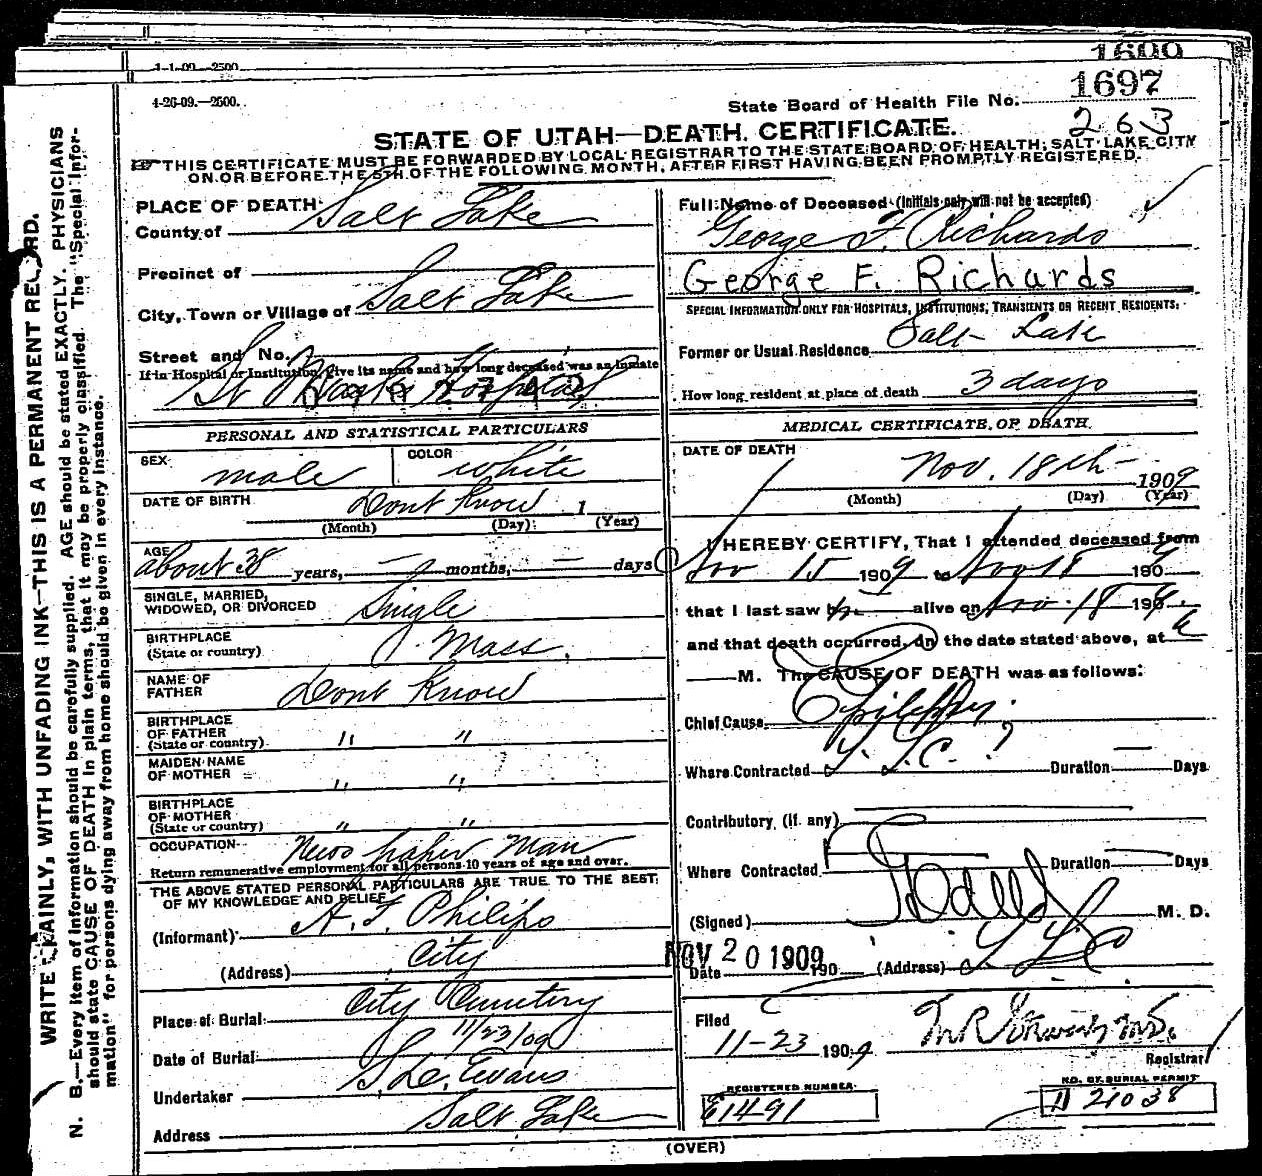 1699
1-1-09-2500
1697
4-26-09.—2500.
State Board of Health File No.
263
STATE OF UTAH—DEATH CERTIFICATE.
THIS CERTIFICATE MUST BE FORWARDED BY LOCAL REGISTRAR TO THE STATE BOARD OF HEALTH, SALT LAKE CITY
ON OR BEFORE THE 5TH OF THE FOLLOWING MONTH, AFTER FIRST HAVING BEEN PROMPTLY REGISTERED.
WRITE PLAINLY, WITH UNFADING INK—THIS IS A PERMANENT RECORD.
N. B.—Every item of information should be carefully supplied. AGE should be stated EXACTLY. PHYSICIANS
should state CAUSE OF DEATH in plain terms, that it may be properly classified. The "Special Infor-
mation" for persons dying away from home should be given in every instance.
PLACE OF DEATH
County of Salt Lake
Precinct of
City, Town or Village of Salt Lake
Street and No.
If in Hospital or Institution, give its name and how long deceased was an inmate
St Marks Hospital
PERSONAL AND STATISTICAL PARTICULARS
SEX male
COLOR white
DATE OF BIRTH Dont Know 1
(Month) (Day) (Year)
AGE about 38 years, — months, — days
SINGLE, MARRIED,
WIDOWED, OR DIVORCED Single
BIRTHPLACE
(State or country) Mass.
NAME OF
FATHER Dont Know
BIRTHPLACE
OF FATHER
(State or country) " "
MAIDEN NAME
OF MOTHER " "
BIRTHPLACE
OF MOTHER
(State or country) " "
OCCUPATION News paper Man
Return remunerative employment for all persons 10 years of age and over.
THE ABOVE STATED PERSONAL PARTICULARS ARE TRUE TO THE BEST
OF MY KNOWLEDGE AND BELIEF
(Informant) A. F. Philips
(Address) City
Place of Burial City Cemetery
Date of Burial 11/23/09
Undertaker S. D. Evans
Address Salt Lake
Full Name of Deceased (Initials only will not be accepted)
George F. Richards
George F. Richards
SPECIAL INFORMATION ONLY FOR HOSPITALS, INSTITUTIONS, TRANSIENTS OR RECENT RESIDENTS.
Former or Usual Residence Salt Lake
How long resident at place of death 3 days
MEDICAL CERTIFICATE OF DEATH.
DATE OF DEATH
Nov. 18th 1909
(Month) (Day) (Year)
I HEREBY CERTIFY, That I attended deceased from
Nov 15 1909 to Nov 18 1909
that I last saw h alive on Nov. 18 1909.
and that death occurred, on the date stated above, at
M. The CAUSE OF DEATH was as follows:
Chief Cause Epilepsy.
Where Contracted S. L. C. ? Duration — Days
Contributory (if any)
Where Contracted Duration — Days
(Signed) M. D.
NOV 20 1909
Date 190 (Address) S L C
Filed
11-23 1909
Registrar
REGISTERED NUMBER
E1491
NO. OF BURIAL PERMIT
D 21038
(OVER)